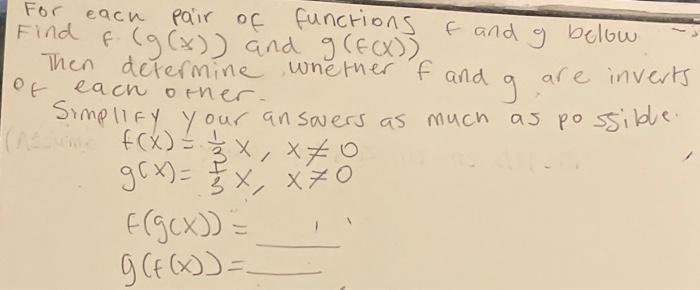 For each pair of functions f and g below
Find f (g(x)) and g(f(x))
Then determine whether f and g are inverts
of each other.
Simplify your answers as much as possible.
(Assume
f(x) = 1/3 x, x≠0
g(x) = 1/3 x, x≠0
f(g(x)) = ____
g(f(x)) = ____